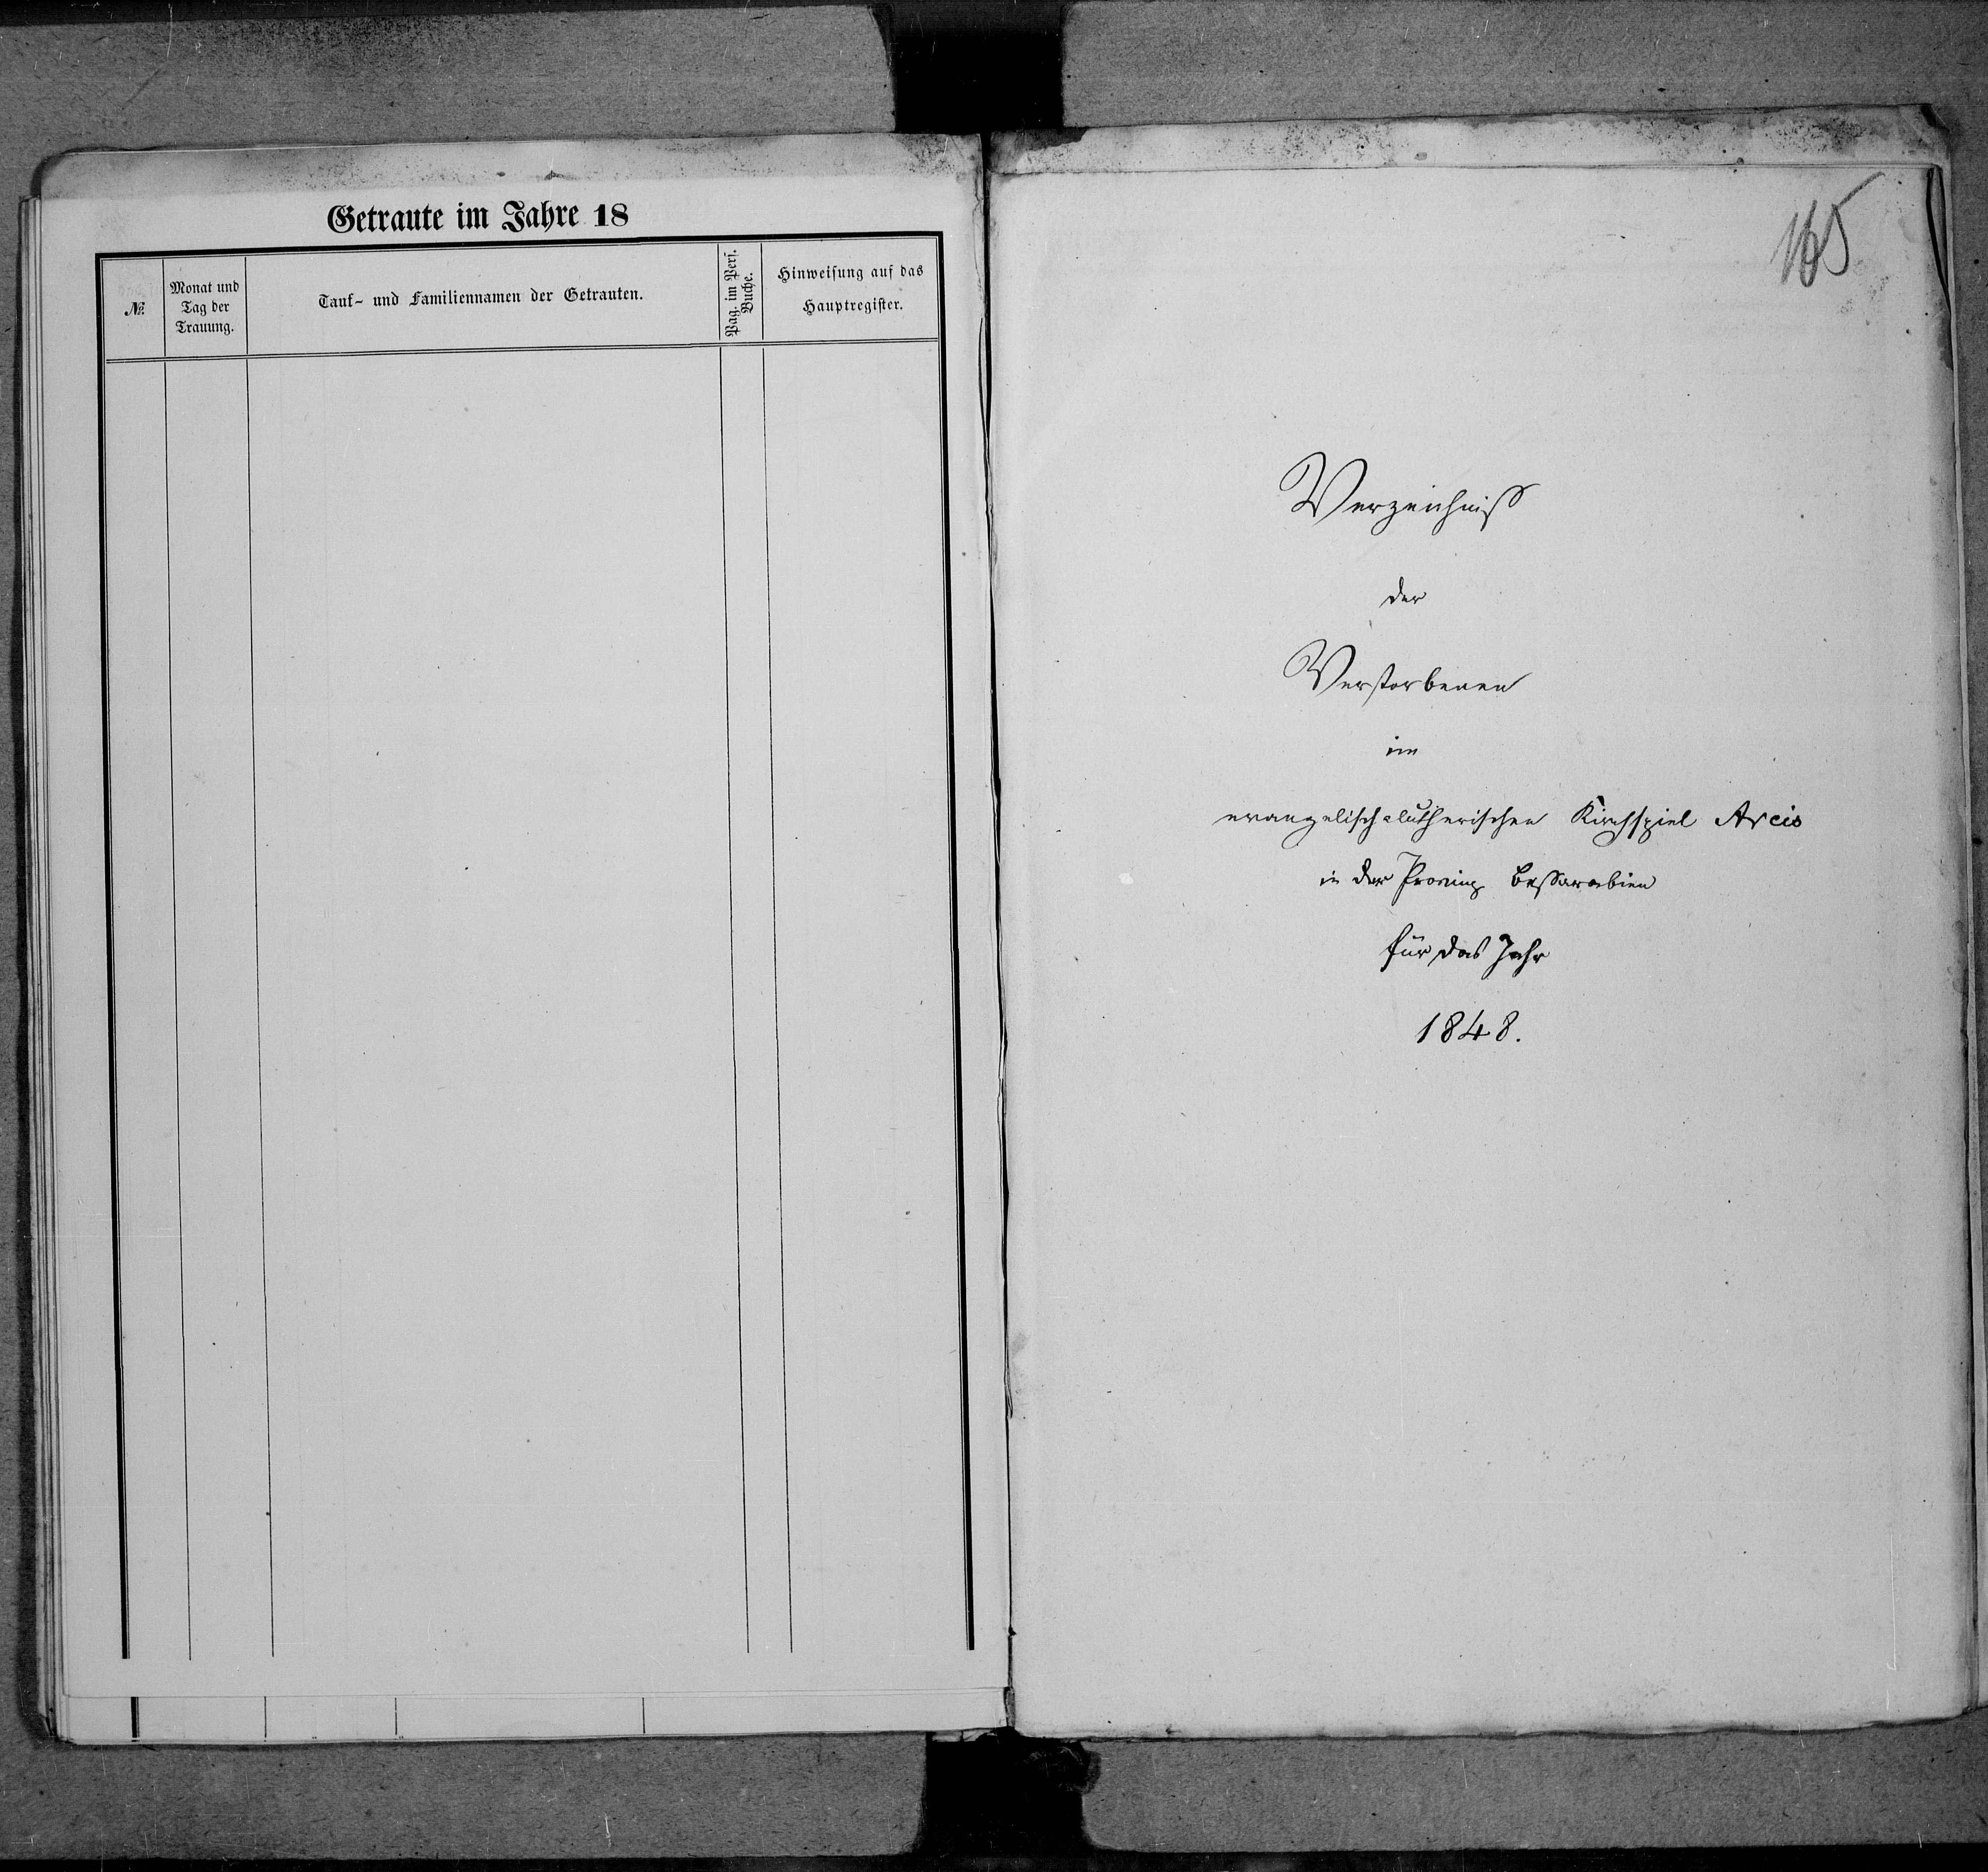 Getraute im Jahre 18
№.
Monat und
Tag der
Trauung.
Tauf- und Familiennamen der Getrauten.
Pag. im Pers.
Buche.
Hinweisung auf das
Hauptregister.
165
Verzeichniß
der
Verstorbenen
im
evangelisch-lutherischen Kirchspiel Arcis
in der Provinz Bessarabien
für das Jahr
1848.